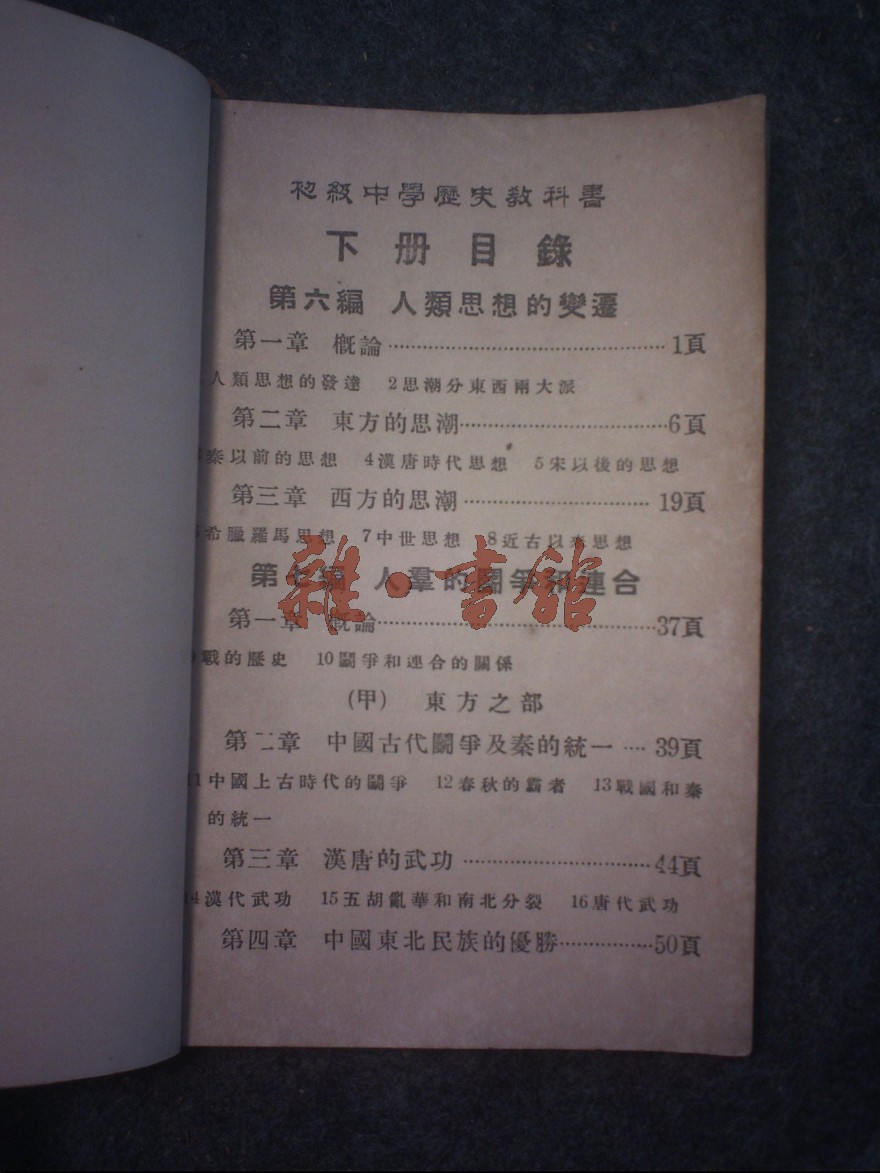 初級中學歷史教科書
下册目錄
第六編 人類思想的變遷
第一章 概論 1頁
人類思想的發達 2思潮分東西兩大派
第二章 東方的思潮 6頁
秦以前的思想 4漢唐時代思想 5宋以後的思想
第三章 西方的思潮 19頁
希臘羅馬思想 7中世思想 8近古以來思想
第七編 人羣的鬭爭和連合
第一章 概論 37頁
戰的歷史 10鬭爭和連合的關係
(甲) 東方之部
第二章 中國古代鬭爭及秦的統一 39頁
11中國上古時代的鬭爭 12春秋的霸者 13戰國和秦
的統一
第三章 漢唐的武功 44頁
14漢代武功 15五胡亂華和南北分裂 16唐代武功
第四章 中國東北民族的優勝 50頁
雜·書館